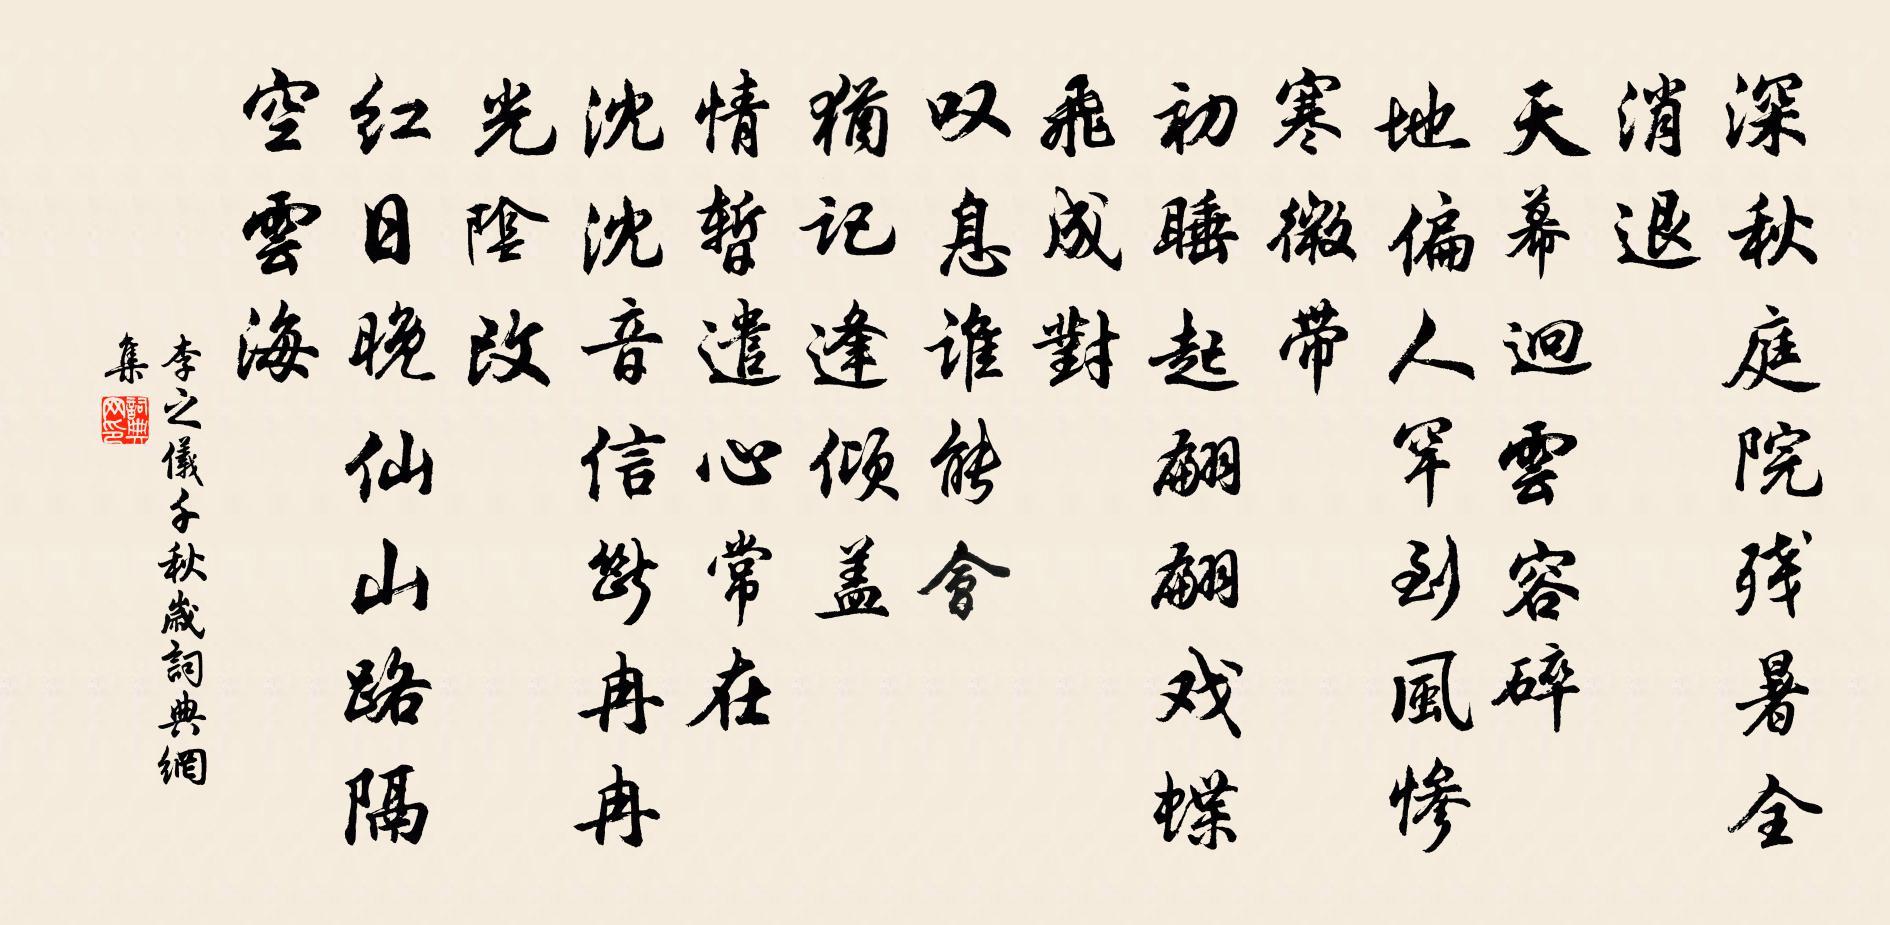 深秋庭院残暑全
消退
天幕迥雲容碎
地偏人罕到風慘
寒微带
初睡起翩翩戏蝶
飛成對
叹息谁能會
猶记逢倾盖
情暫遣心常在
沈沈音信斷冉冉
光陰改
红日晚仙山路隔
空雲海
李之儀千秋歲詞典網
集
詞典
网印